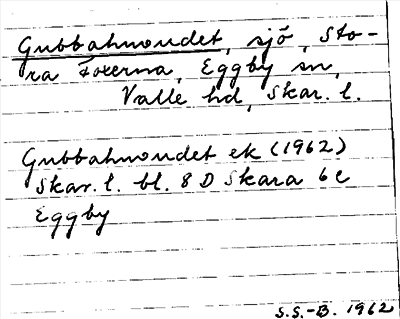 Gubbahwudet, sjö, Sto-
ra Foxerna, Eggby sn,
Valle hd, Skar. l.
Gubbahwudet ek (1962)
Skar. l. bl. 8 D Skara 6 c
Eggby
S.S.-B. 1962